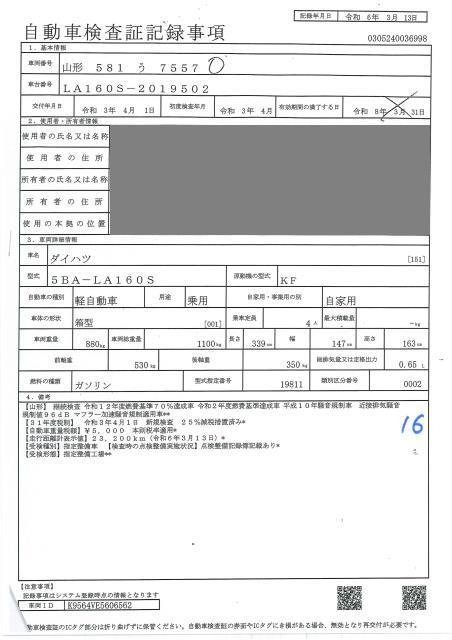 記録年月日 令和 6年 3月 13日
自動車検査証記録事項
0305240036998
1．基本情報
車両番号 山形 581 う 7557
車台番号 LA160S－2019502
交付年月日 令和 3年 4月 1日 初度検査年月 令和 3年 4月 有効期間の満了する日 令和 8年 3月 31日
2．使用者・所有者情報
使用者の氏名又は名称
使用者の住所
所有者の氏名又は名称
所有者の住所
使用の本拠の位置
3．車両詳細情報
車名 ダイハツ [151]
型式 5BA－LA160S 原動機の型式 KF
自動車の種別 軽自動車 用途 乗用 自家用・事業用の別 自家用
車体の形状 箱型 [001] 乗車定員 4人 最大積載量 －kg
車両重量 880kg 車両総重量 1100kg 長さ 339cm 幅 147cm 高さ 163cm
前軸重 530kg 後軸重 350kg 総排気量又は定格出力 0.65L
燃料の種類 ガソリン 型式指定番号 19811 類別区分番号 0002
4．備考
【山形】 継続検査 令和12年度燃費基準70％達成車 令和2年度燃費基準達成車 平成10年騒音規制車 近接排気騒音
規制値96dB マフラー加速騒音規制適用車**
【31年度税制】 令和3年4月1日 新規検査 25％減税措置済み*
【自動車重量税額】￥5,000 本則税率適用*
【走行距離計表示値】23,200km（令和6年3月13日）*
【受検種別】指定整備車 【検査時の点検整備実施状況】点検整備記録簿記載あり*
【受検形態】指定整備工場**
16
【注意事項】
記録事項はシステム登録時点の情報となります
車両ID K9564VE5606562
自動車検査証のICタグ部分は折り曲げずに保管ください。自動車検査証の券面やICタグにき損がある場合、無効となり再交付が必要です。